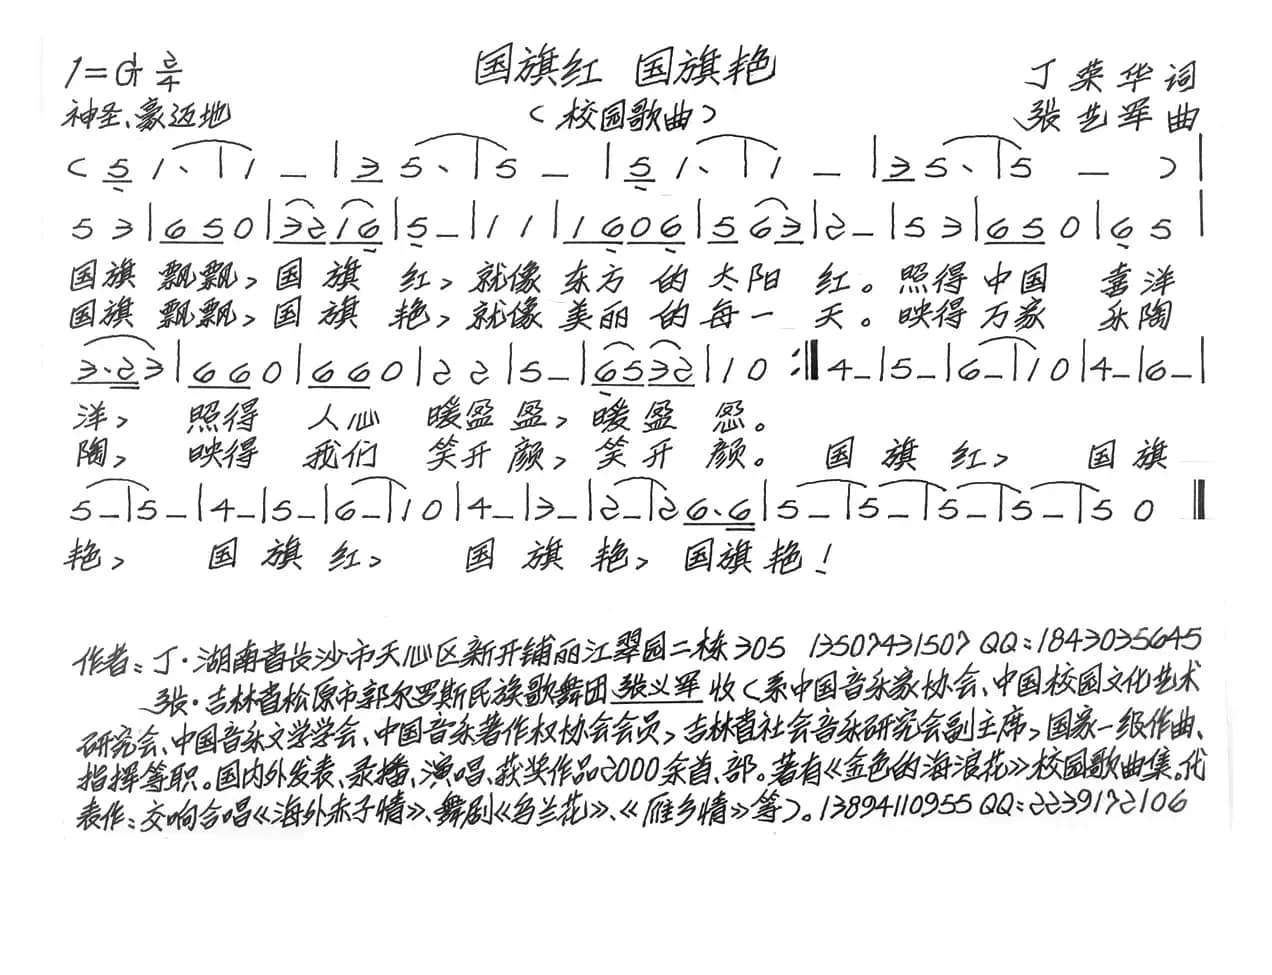 国旗红 国旗艳
1=G 2/4
丁荣华词
神圣、豪迈地
(校园歌曲)
张艺军曲
( 5 1、 | 1 — | 3 5、 | 5 — | 5 1、 | 1 — | 3 5、 | 5 — ) |
5 3 | 6 5 0 | 3 2 1 6 | 5 — | 1 1 | 1 6 0 6 | 5 6 3 | 2 — | 5 3 | 6 5 0 | 6 5 |
国旗 飘飘, 国 旗 红, 就像 东方 的 太阳 红。 照得 中国 喜洋
国旗 飘飘, 国 旗 艳, 就像 美丽 的 每一 天。 映得 万家 乐陶
3·2 3 | 6 6 0 | 6 6 0 | 2 2 | 5 — | 6 5 3 2 | 1 0 :‖ 4 — | 5 — | 6 — | 1 0 | 4 — | 6 — |
洋, 照得 人心 暖盈盈, 暖盈 盈。
陶, 映得 我们 笑开颜, 笑开 颜。 国 旗 红, 国 旗
5 — | 5 — | 4 — | 5 — | 6 — | 1 0 | 4 — | 3 — | 2 — | 2 6、6 | 5 — | 5 — | 5 — | 5 — | 5 0 ‖
艳, 国 旗 红, 国 旗 艳, 国旗艳!
作者:丁·湖南省长沙市天心区新开铺丽江翠园二栋305 13507431507 QQ:1843035645
张·吉林省松原市郭尔罗斯民族歌舞团张义军收(系中国音乐家协会、中国校园文化艺术
研究会、中国音乐文学学会、中国音乐著作权协会会员,吉林省社会音乐研究会副主席,国家一级作曲、
指挥等职。国内外发表、录播、演唱、获奖作品2000余首、部。著有《金色的海浪花》校园歌曲集。代
表作:交响合唱《海外赤子情》、舞剧《乌兰花》、《雁乡情》等)。13894110955 QQ:2239172106